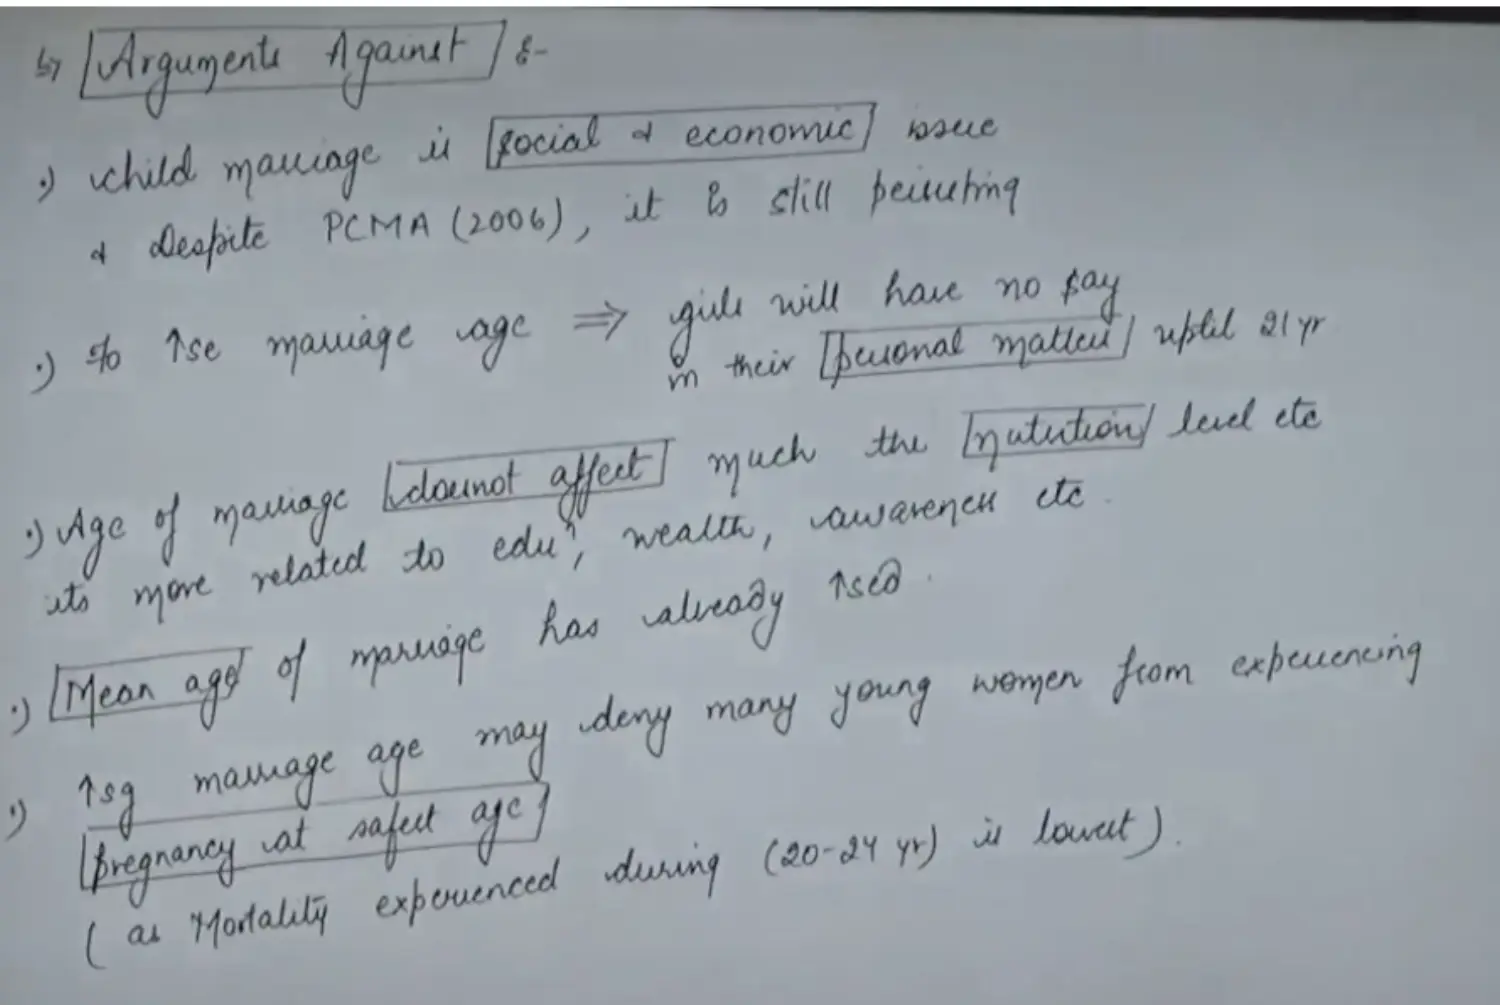 b) Arguments Against :-
•) child marriage is social & economic issue
& Despite PCMA (2006), it is still persisting
•) to ↑se marriage age ⇒ girls will have no say
in their personal matters uptil 21 yr
•) Age of marriage doesnot affect much the nutrition level etc
its more related to eduⁿ, wealth, awareness etc.
•) Mean age of marriage has already ↑sed.
•) ↑sg marriage age may deny many young women from experiencing
pregnancy at safest age
( as Mortality experienced during (20-24 yr) is lowest).